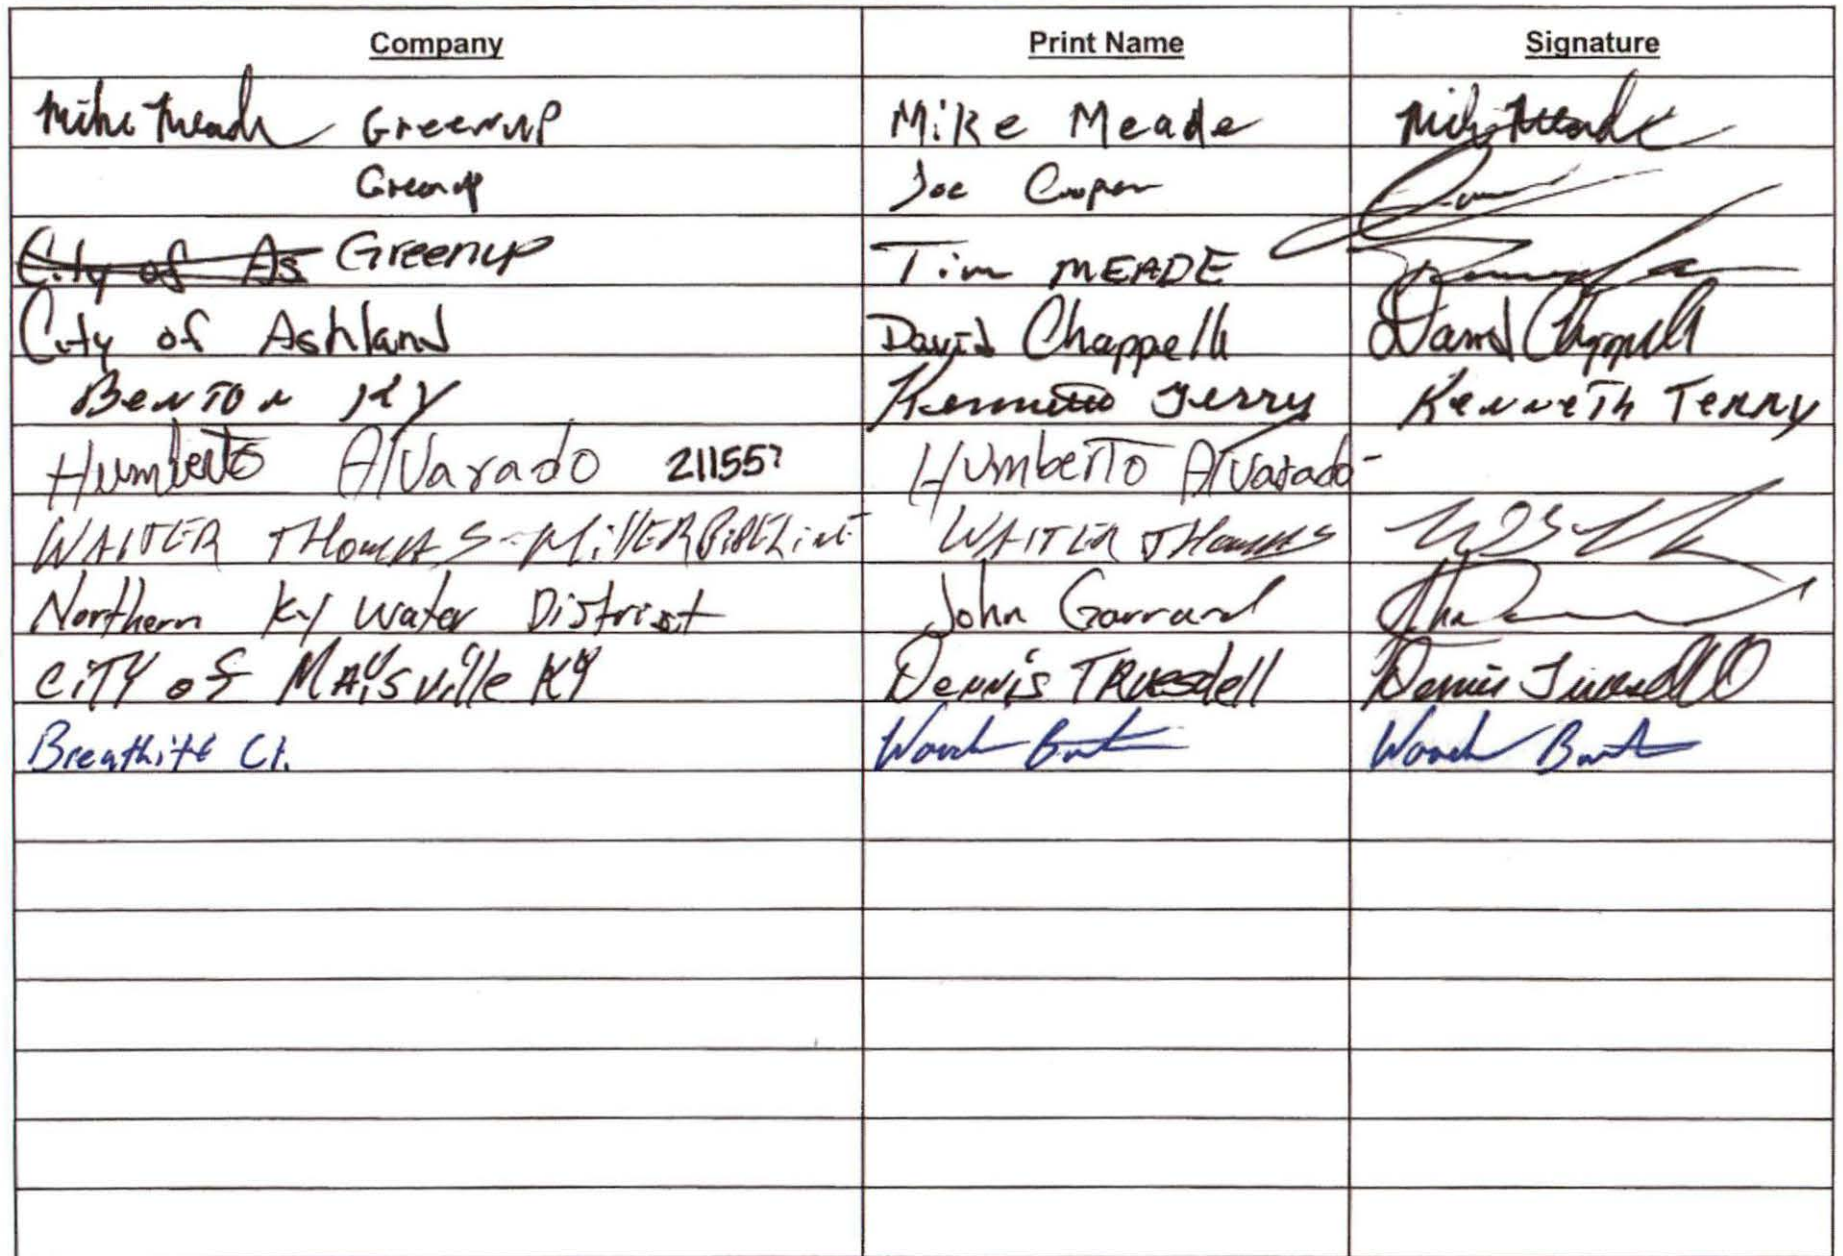 Company Print Name Signature
Mike Meade Greenup Mike Meade Mike Meade
Greenup Joe Cooper
City of As Greenup Tim MEADE
City of Ashland David Chappell David Chappell
Benton KY Kenneth Terry Kenneth Terry
Humberto Alvarado 211557 Humberto Alvarado
WALTER THOMAS - MillER PiPELinE WALTER THOMAS
Northern Ky Water District John Garrard
CiTY of MAysville KY Dennis TRuesdell Dennis Truesdell
Breathitt Ct.